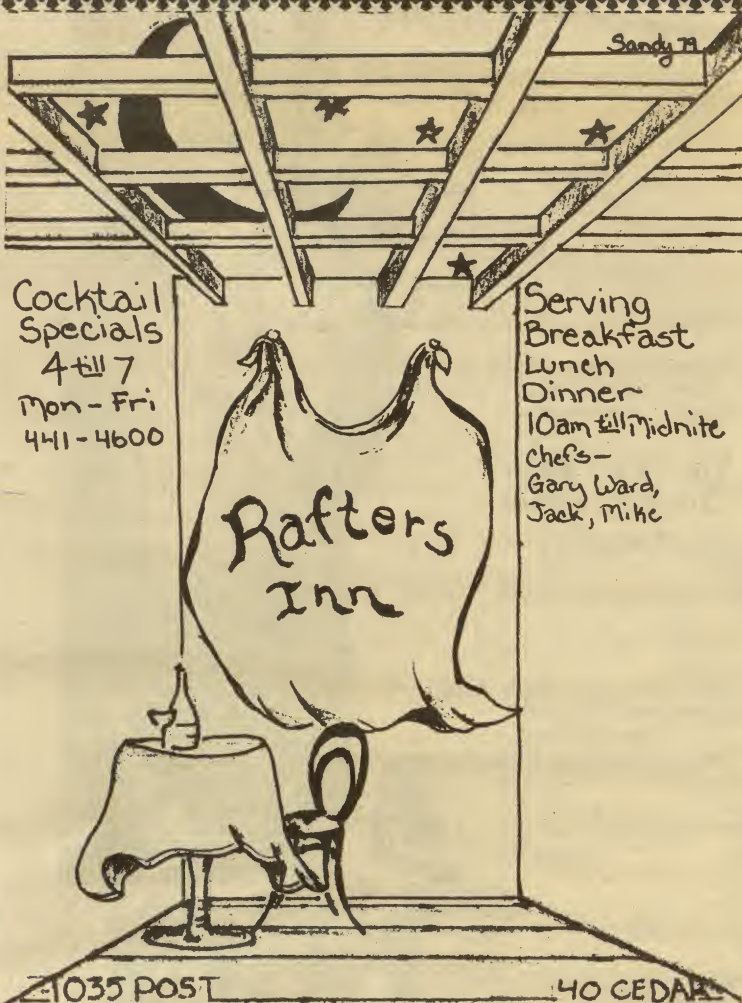 Sandy 79
Cocktail
Specials
4 till 7
Mon - Fri
441-4600
Serving
Breakfast
Lunch
Dinner
10am till Midnite
Chefs-
Gary Ward,
Jack, Mike
Rafters
Inn
1035 POST
40 CEDAR